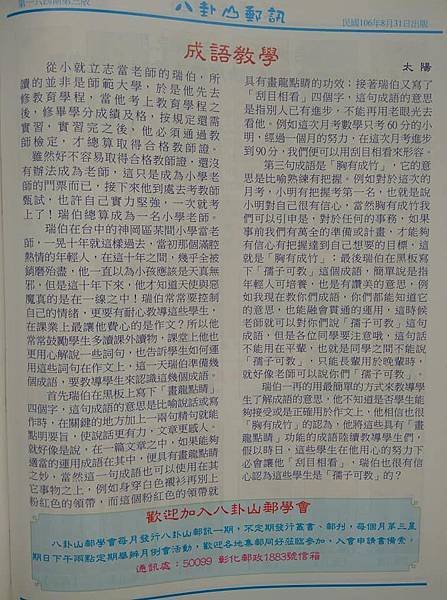 第一六四期第三版
八卦山郵訊
民國106年8月31日出版
成語教學
太陽
從小就立志當老師的瑞伯,所
讀的並非是師範大學,於是他先去
修教育學程,當他考上教育學程之
後,修畢學分成績及格,按規定還需
實習,實習完之後,他必須通過教
師檢定,才總算取得合格教師證。
雖然好不容易取得合格教師證,還沒
有辦法成為老師,這只是成為小學老
師的門票而已,接下來他到處去考教師
甄試,也許自己實力堅強,一次就考
上了!瑞伯總算成為一名小學老師。
瑞伯在台中的神岡區某間小學當老
師,一晃十年就這樣過去,當初那個滿腔
熱情的年輕人,在這十年之間,幾乎全被
銷磨殆盡,他一直以為小孩應該是天真無
邪,但是這十年下來,他才知道天使與惡
魔真的是在一線之中!瑞伯常常要控制
自己的情緒,更要有耐心教導這些學生,
在課業上最讓他費心的是作文?所以他
常常鼓勵學生多讀課外讀物,課堂上他也
更用心解說一些詞句,也告訴學生如何運
用這些詞句在作文上,這一天瑞伯準備幾
個成語,要教導學生來認識這幾個成語。
首先瑞伯在黑板上寫下「畫龍點睛」
四個字,這句成語的意思是比喻說話或寫
作時,在關鍵的地方加上一兩句精句就能
點明要旨,使說話更有力,文章更感人。
就好像是說,在一篇文章之中,如果能夠
適當的運用成語在其中,便具有畫龍點睛
之妙,當然這一句成語也可以使用在其
它事物之上,例如身穿白色襯衫再別上
粉紅色的領帶,而這個粉紅色的領帶就
具有畫龍點睛的功效;接著瑞伯又寫了
「刮目相看」四個字,這句成語的意思
是指別人已有進步,不能再用老眼光去
看他。例如這次月考數學只考60分的小
明,經過一個月的努力,在這次月考進步
到90分,我們便可以用刮目相看來形容。
第三句成語是「胸有成竹」,它的意
思是比喻熟練有把握。例如對於這次的
月考,小明有把握考第一名,也就是說
小明對自己很有信心,當然胸有成竹我
們可以引申是,對於任何的事務,如果
事前我們有萬全的準備或計畫,才能夠
有信心有把握達到自己想要的目標,這
就是「胸有成竹」;最後瑞伯在黑板寫
下「孺子可教」這個成語,簡單說是指
年輕人可培養,也是有讚美的意思,例
如我現在教你們成語,你們都能知道它
的意思,也能融會貫通的運用,這時候
老師就可以對你們說「孺子可教」這句
成語,但是各位同學要注意哦,這句話
不能用在平輩,也就是同學之間不能說
「孺子可教」,只能長輩用於晚輩時,
就好像老師可以說你們「孺子可教」。
瑞伯一再的用最簡單的方式來教導學
生了解成語的意思,他不知道是否學生能
夠接受或是正確用於作文上,他相信也很
「胸有成竹」的認為,他將這些具有「畫
龍點睛」功能的成語陸續教導學生們,
假以時日,這些學生在他用心的努力下
必會讓他「刮目相看」,瑞伯也很有信
心認為這些學生是「孺子可教」的?
歡迎加入八卦山郵學會
八卦山郵學會每月發行八卦山郵訊一期,不定期發行叢書、郵刊,每個月第三星
期日下午兩點定期舉辦月例會活動,歡迎各地集郵同好蒞臨參加,入會申請書備索,
通訊處:50099 彰化郵政1883號信箱